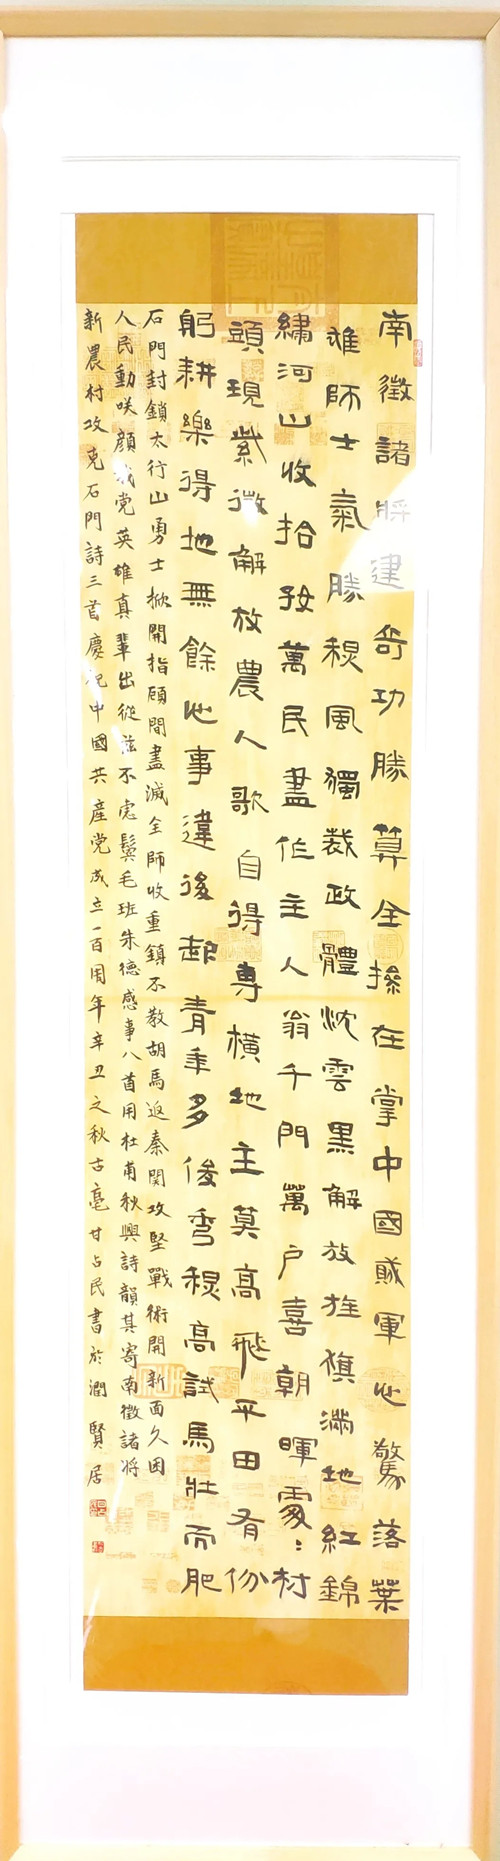 南徵諸將建奇功勝算全操在掌中國賊軍心驚落葉
雄師士氣勝秋風獨裁政體沈雲黑解放旌旗滿地紅錦
繡河山收拾好萬民盡作主人翁千門萬戶喜朝暉處:村
頭現紫微解放農人歌自得專橫地主莫高飛平田有份
躬耕樂得地無餘心事違後起青年多俊秀秋高試馬壯而肥
石門封鎖太行山勇士掀開指顧間盡滅全師收重鎮不教胡馬返秦関攻堅戰術開新面久困
人民動咲顏我党英雄真輩出從兹不虑鬓毛班朱德感事八首用杜甫秋興詩韻其寄南徵諸将
新農村攻克石門詩三首慶祝中國共產党成立一百周年辛丑之秋古亳甘占民書於潤賢居